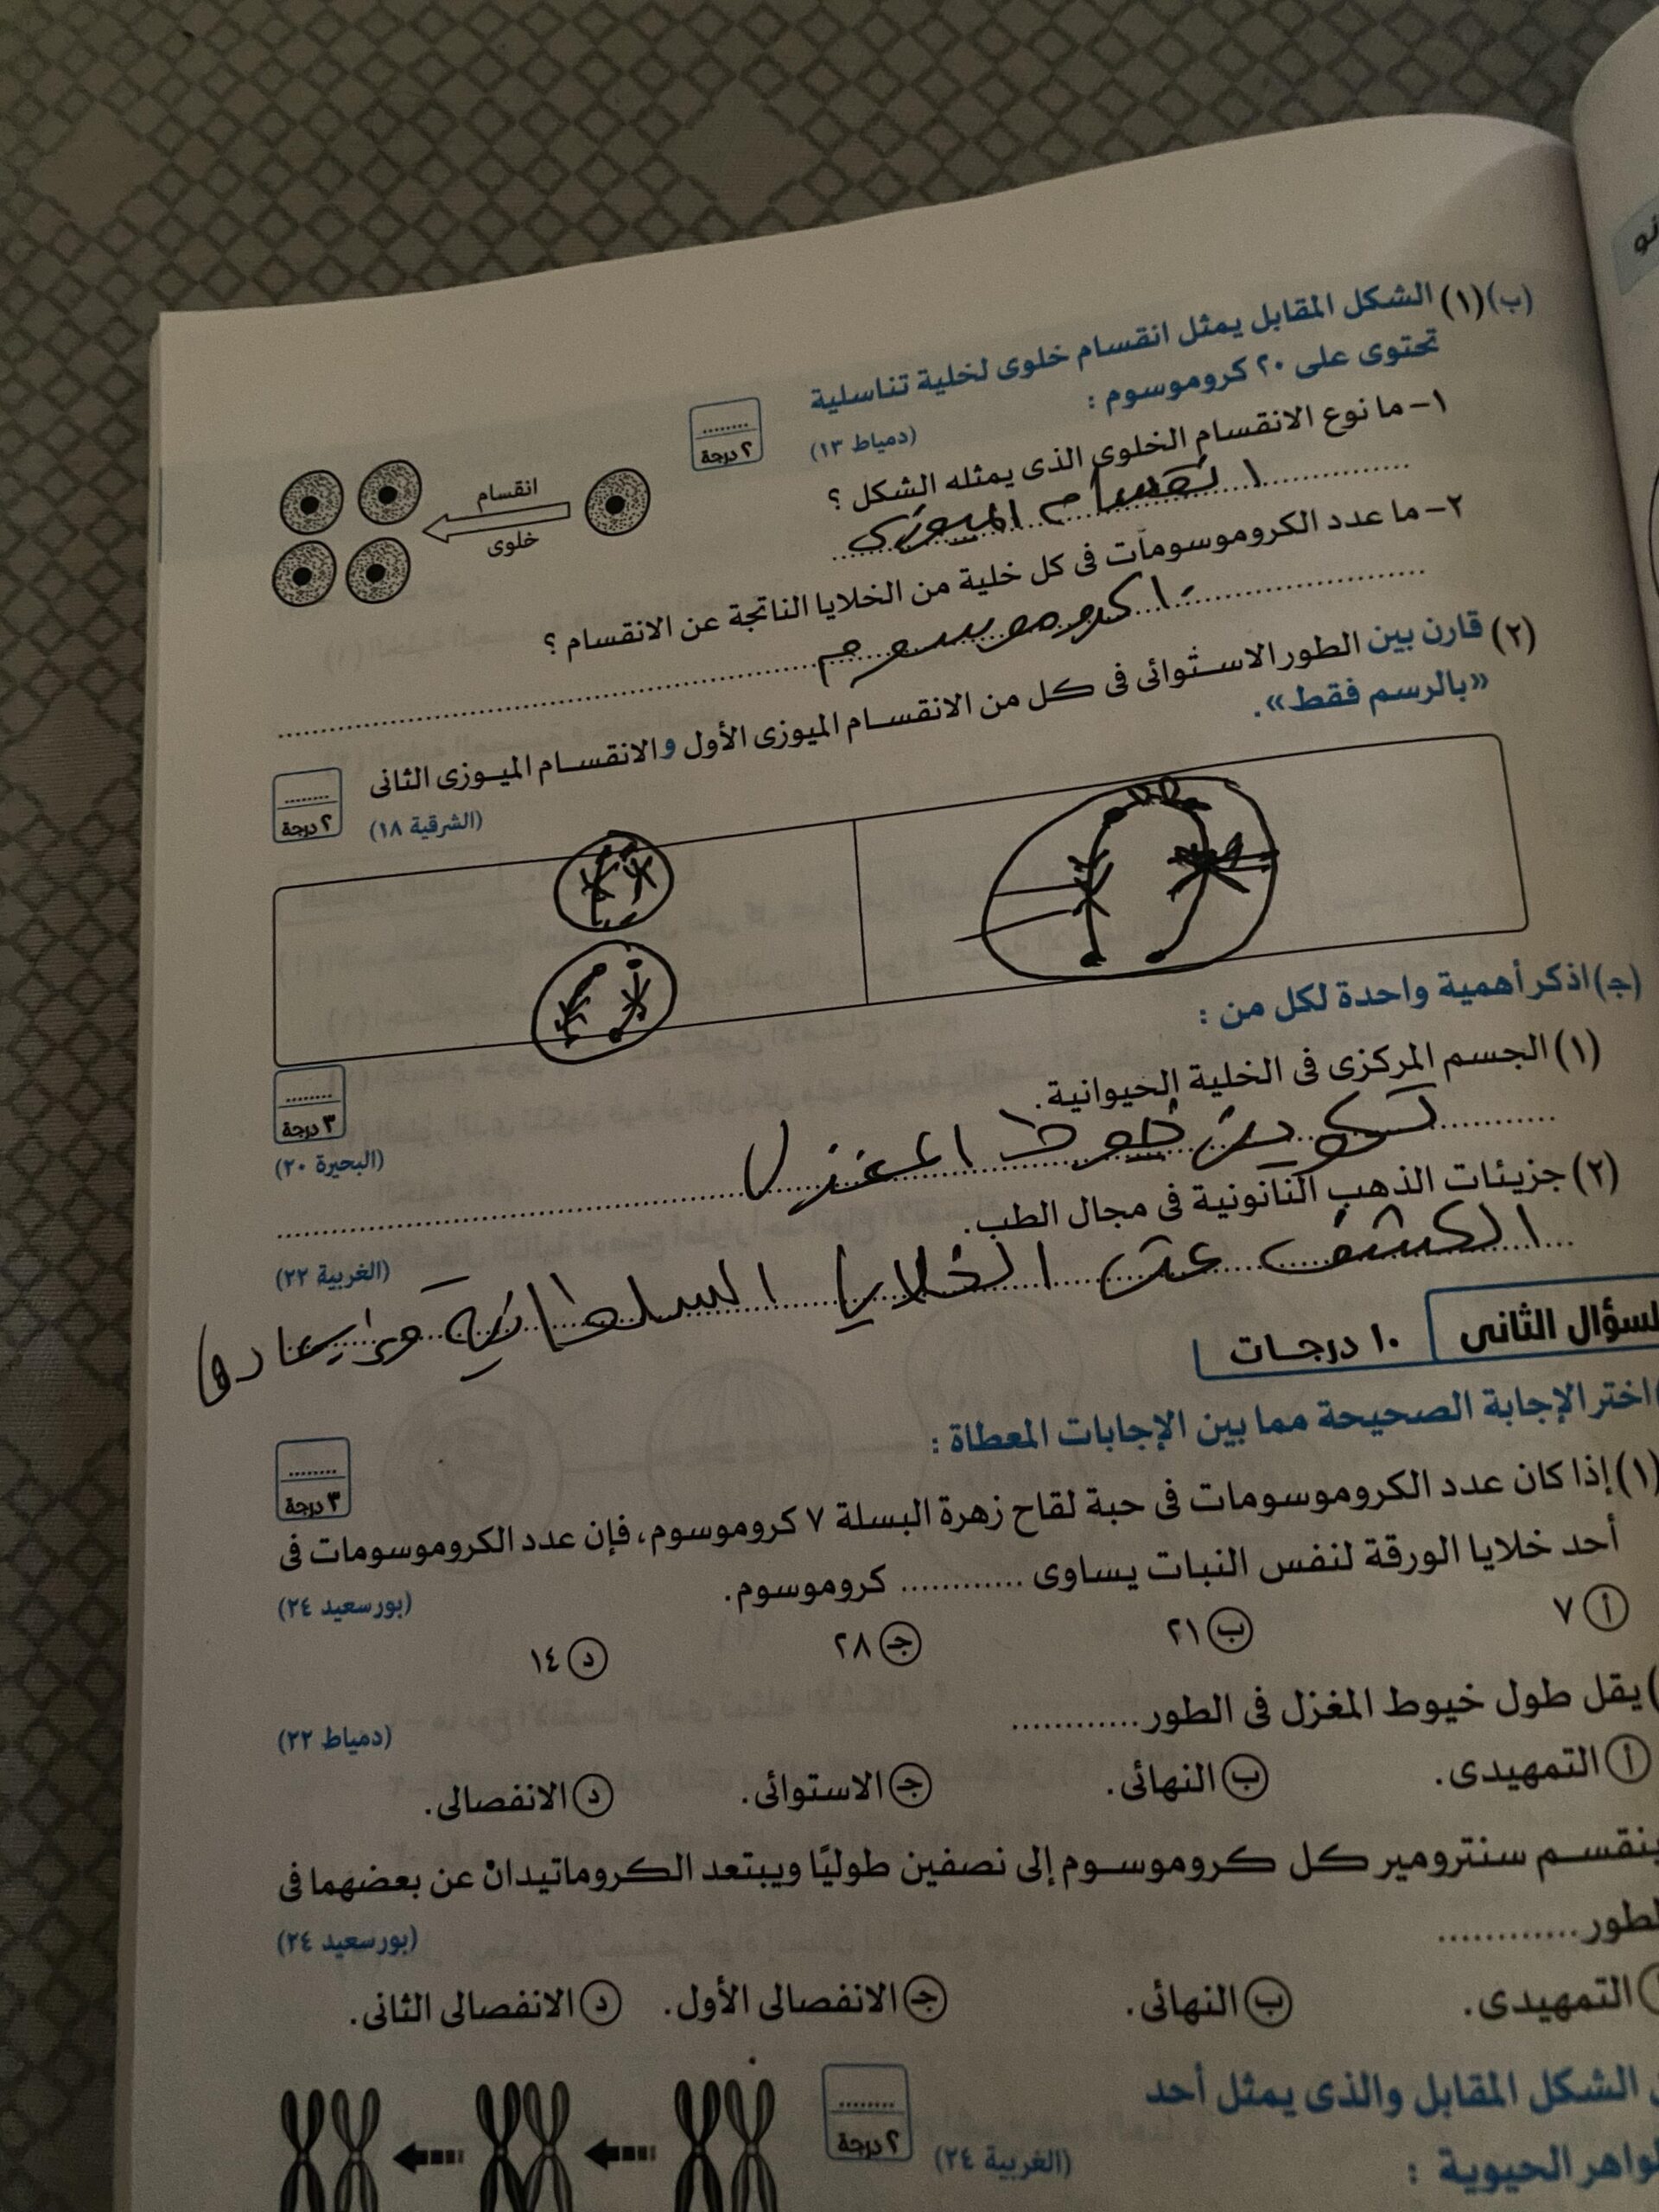 (ب)(١) الشكل المقابل يمثل انقسام خلوى لخلية تناسلية
تحتوى على ٢٠ كروموسوم :
(دمياط ١٣)
........
٢ درجة
١- ما نوع الانقسام الخلوى الذى يمثله الشكل ؟
انقسام الميوزى
انقسام
خلوى
٢- ما عدد الكروموسومات فى كل خلية من الخلايا الناتجة عن الانقسام ؟
١٠ كروموسوم
(٢) قارن بين الطور الاستوائى فى كل من الانقسام الميوزى الأول و الانقسام الميوزى الثانى
«بالرسم فقط».
(الشرقية ١٨)
........
٢ درجة
(جـ) اذكر أهمية واحدة لكل من :
(١) الجسم المركزى فى الخلية الحيوانية.
........
٣ درجة
(البحيرة ٢٠)
تكوين خيوط المغزل
(٢) جزيئات الذهب النانونية فى مجال الطب.
(الغربية ٢٢)
الكشف عن الخلايا السلطانية
لسؤال الثانى
١٠ درجات
اختر الإجابة الصحيحة مما بين الإجابات المعطاة :
........
٣ درجة
(١) إذا كان عدد الكروموسومات فى حبة لقاح زهرة البسلة ٧ كروموسوم، فإن عدد الكروموسومات فى
أحد خلايا الورقة لنفس النبات يساوى ............ كروموسوم.
(بورسعيد ٢٤)
أ ٧
ب ٢١
جـ ٢٨
د ١٤
) يقل طول خيوط المغزل فى الطور ............
(دمياط ٢٢)
أ التمهيدى.
ب النهائى.
جـ الاستوائى.
د الانفصالى.
ينقسم سنترومير كل كروموسوم إلى نصفين طوليًا ويبتعد الكروماتيدان عن بعضهما فى
لطور ............
(بورسعيد ٢٤)
التمهيدى.
ب النهائى.
جـ الانفصالى الأول.
د الانفصالى الثانى.
الشكل المقابل والذى يمثل أحد
........
٢ درجة
(الغربية ٢٤)
لواهر الحيوية :